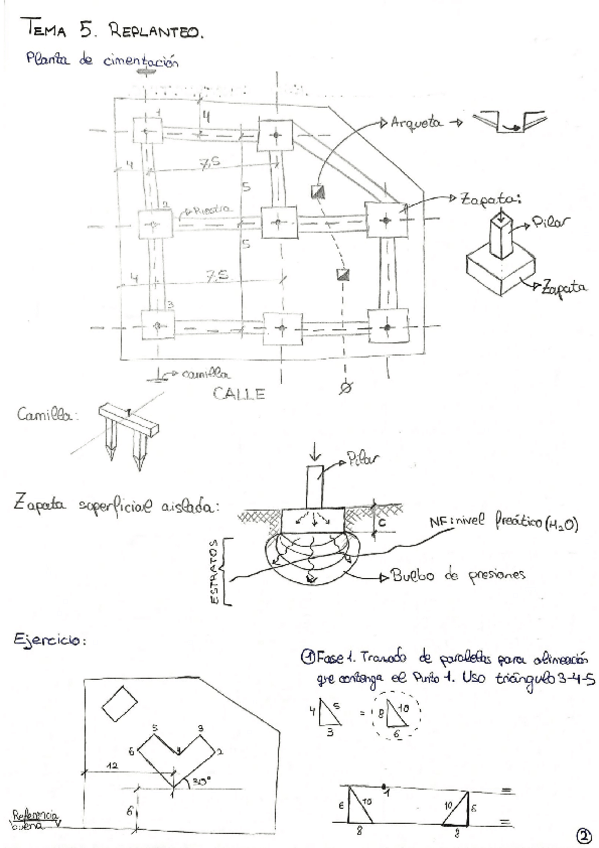 TEMA 5. REPLANTEO.
Planta de cimentación
1
4
Arqueta
4
7,5
5
Zapata:
2
Riostra
Pilar
5
Zapata
7,5
4
3
camilla
CALLE
Camilla:
Pilar
Zapata superficial aislada:
C
NF: nivel freático (H2O)
ESTRATOS
Bulbo de presiones
Ejercicio:
① Fase 1. Trazado de paralelas para alineación
que contenga el Punto 1. Uso triángulo 3-4-5
4 5 = 8 10
3 6
5 3
6 2
12
30°
6
Referencia
buena
1
6 10 10 6
8 8
②